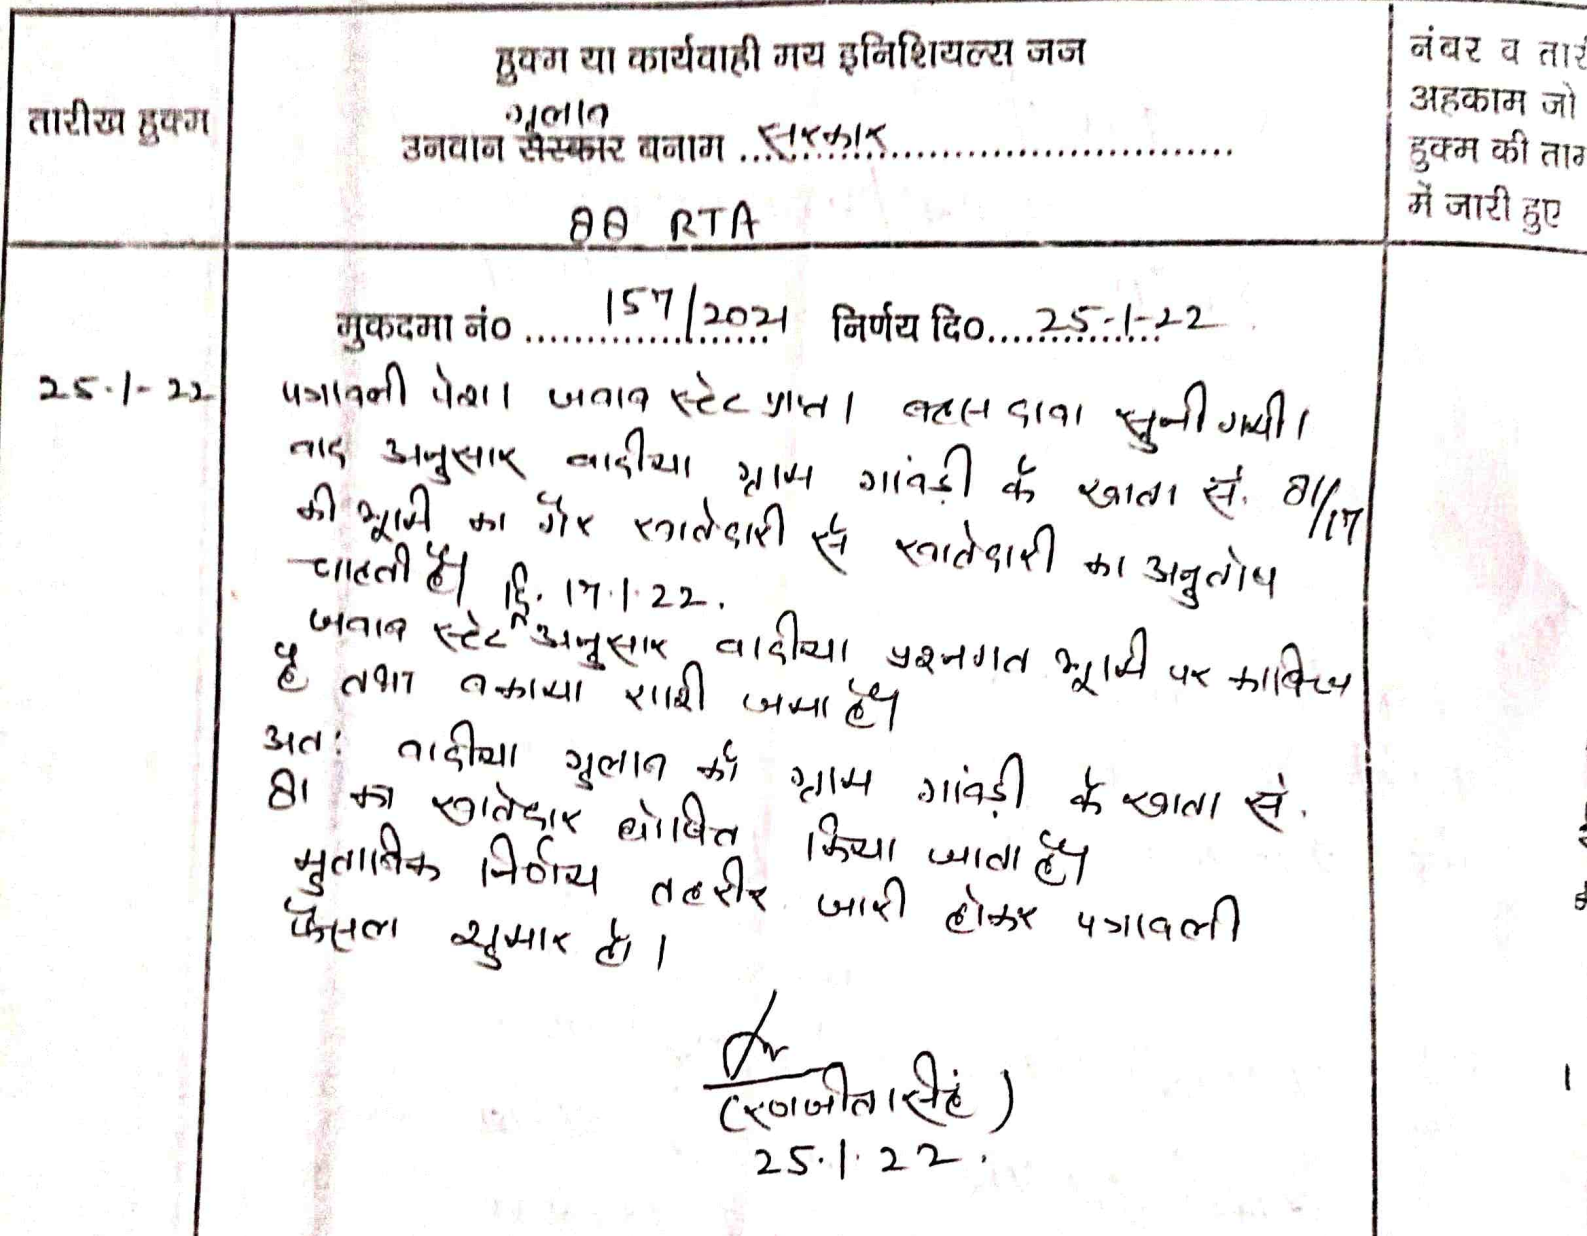 हुक्म या कार्यवाही मय इनिशियल्स जज
तारीख हुक्म
गुलाब
उनवान सरकार बनाम ... सरकार
88 RTA
नंबर व तारी
अहकाम जो
हुक्म की ताम
में जारी हुए
मुकदमा नं० 157/2021 निर्णय दि० 25-1-22
25-1-22
पत्रावली पेश। जवाब स्टेट प्राप्त। बहस दावा सुनी गयी।
वाद अनुसार वादीया ग्राम गांवड़ी के खाता सं. 81/17
की भूमि का गैर खातेदारी से खातेदारी का अनुतोष
चाहती है।
दि. 17.1.22.
जवाब स्टेट अनुसार वादीया प्रश्नगत भूमि पर काबिज
है तथा बकाया राशी जमा है।
अतः वादीया गुलाब को ग्राम गांवड़ी के खाता सं.
81 का खातेदार घोषित किया जाता है।
मुताबिक निर्णय तहरीर जारी होकर पत्रावली
फैसल शुमार हो।
(रणजीत सिंह)
25.1.22.